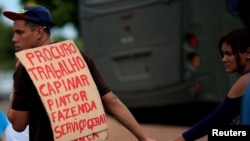 PROCURO
TRABALHO
CAPINAR
PINTOR
FAZENDA
SERVIÇO GERAL